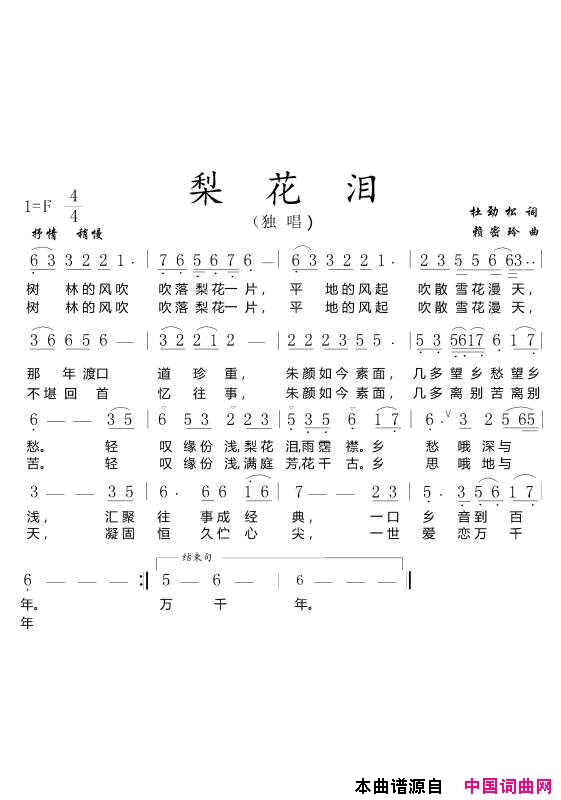 梨 花 泪
(独 唱)
1=F 4/4
杜劲松 词
抒情 稍慢
赖密玲 曲
6 3 3 2 2 1 · | 7 6 5 6 7 6 — | 6 3 3 2 2 1 · | 2 3 5 5 6 6 3 ··
树 林的风吹 吹落梨花一片, 平 地的风起 吹散雪花漫天,
树 林的风吹 吹落梨花一片, 平 地的风起 吹散雪花漫天,
3 6 6 5 6 — | 3 2 2 1 2 — | 2 2 2 3 5 5 · | 5 3 5 6 1 7 6 1 7
那 年渡口 道 珍 重, 朱颜如今素面, 几多望乡愁望乡
不堪回首 忆 往 事, 朱颜如今素面, 几多离别苦离别
愁。 轻 叹缘份浅,梨花泪,雨霑襟。乡 愁 哦深与
苦。 轻 叹缘份浅,满庭芳,花千古。乡 思 哦地与
3 — — 3 5 | 6 · 6 6 1 6 | 7 — — 2 3 |
浅, 汇聚 往 事成经 典, 一口乡音到百
天, 凝固 恒 久伫心 尖, 一世爱恋万千
结束句
6 — — — :| 5 — 6 — | 6 — — — ‖
年。 万 千 年。
年
本曲谱源自 中国词曲网